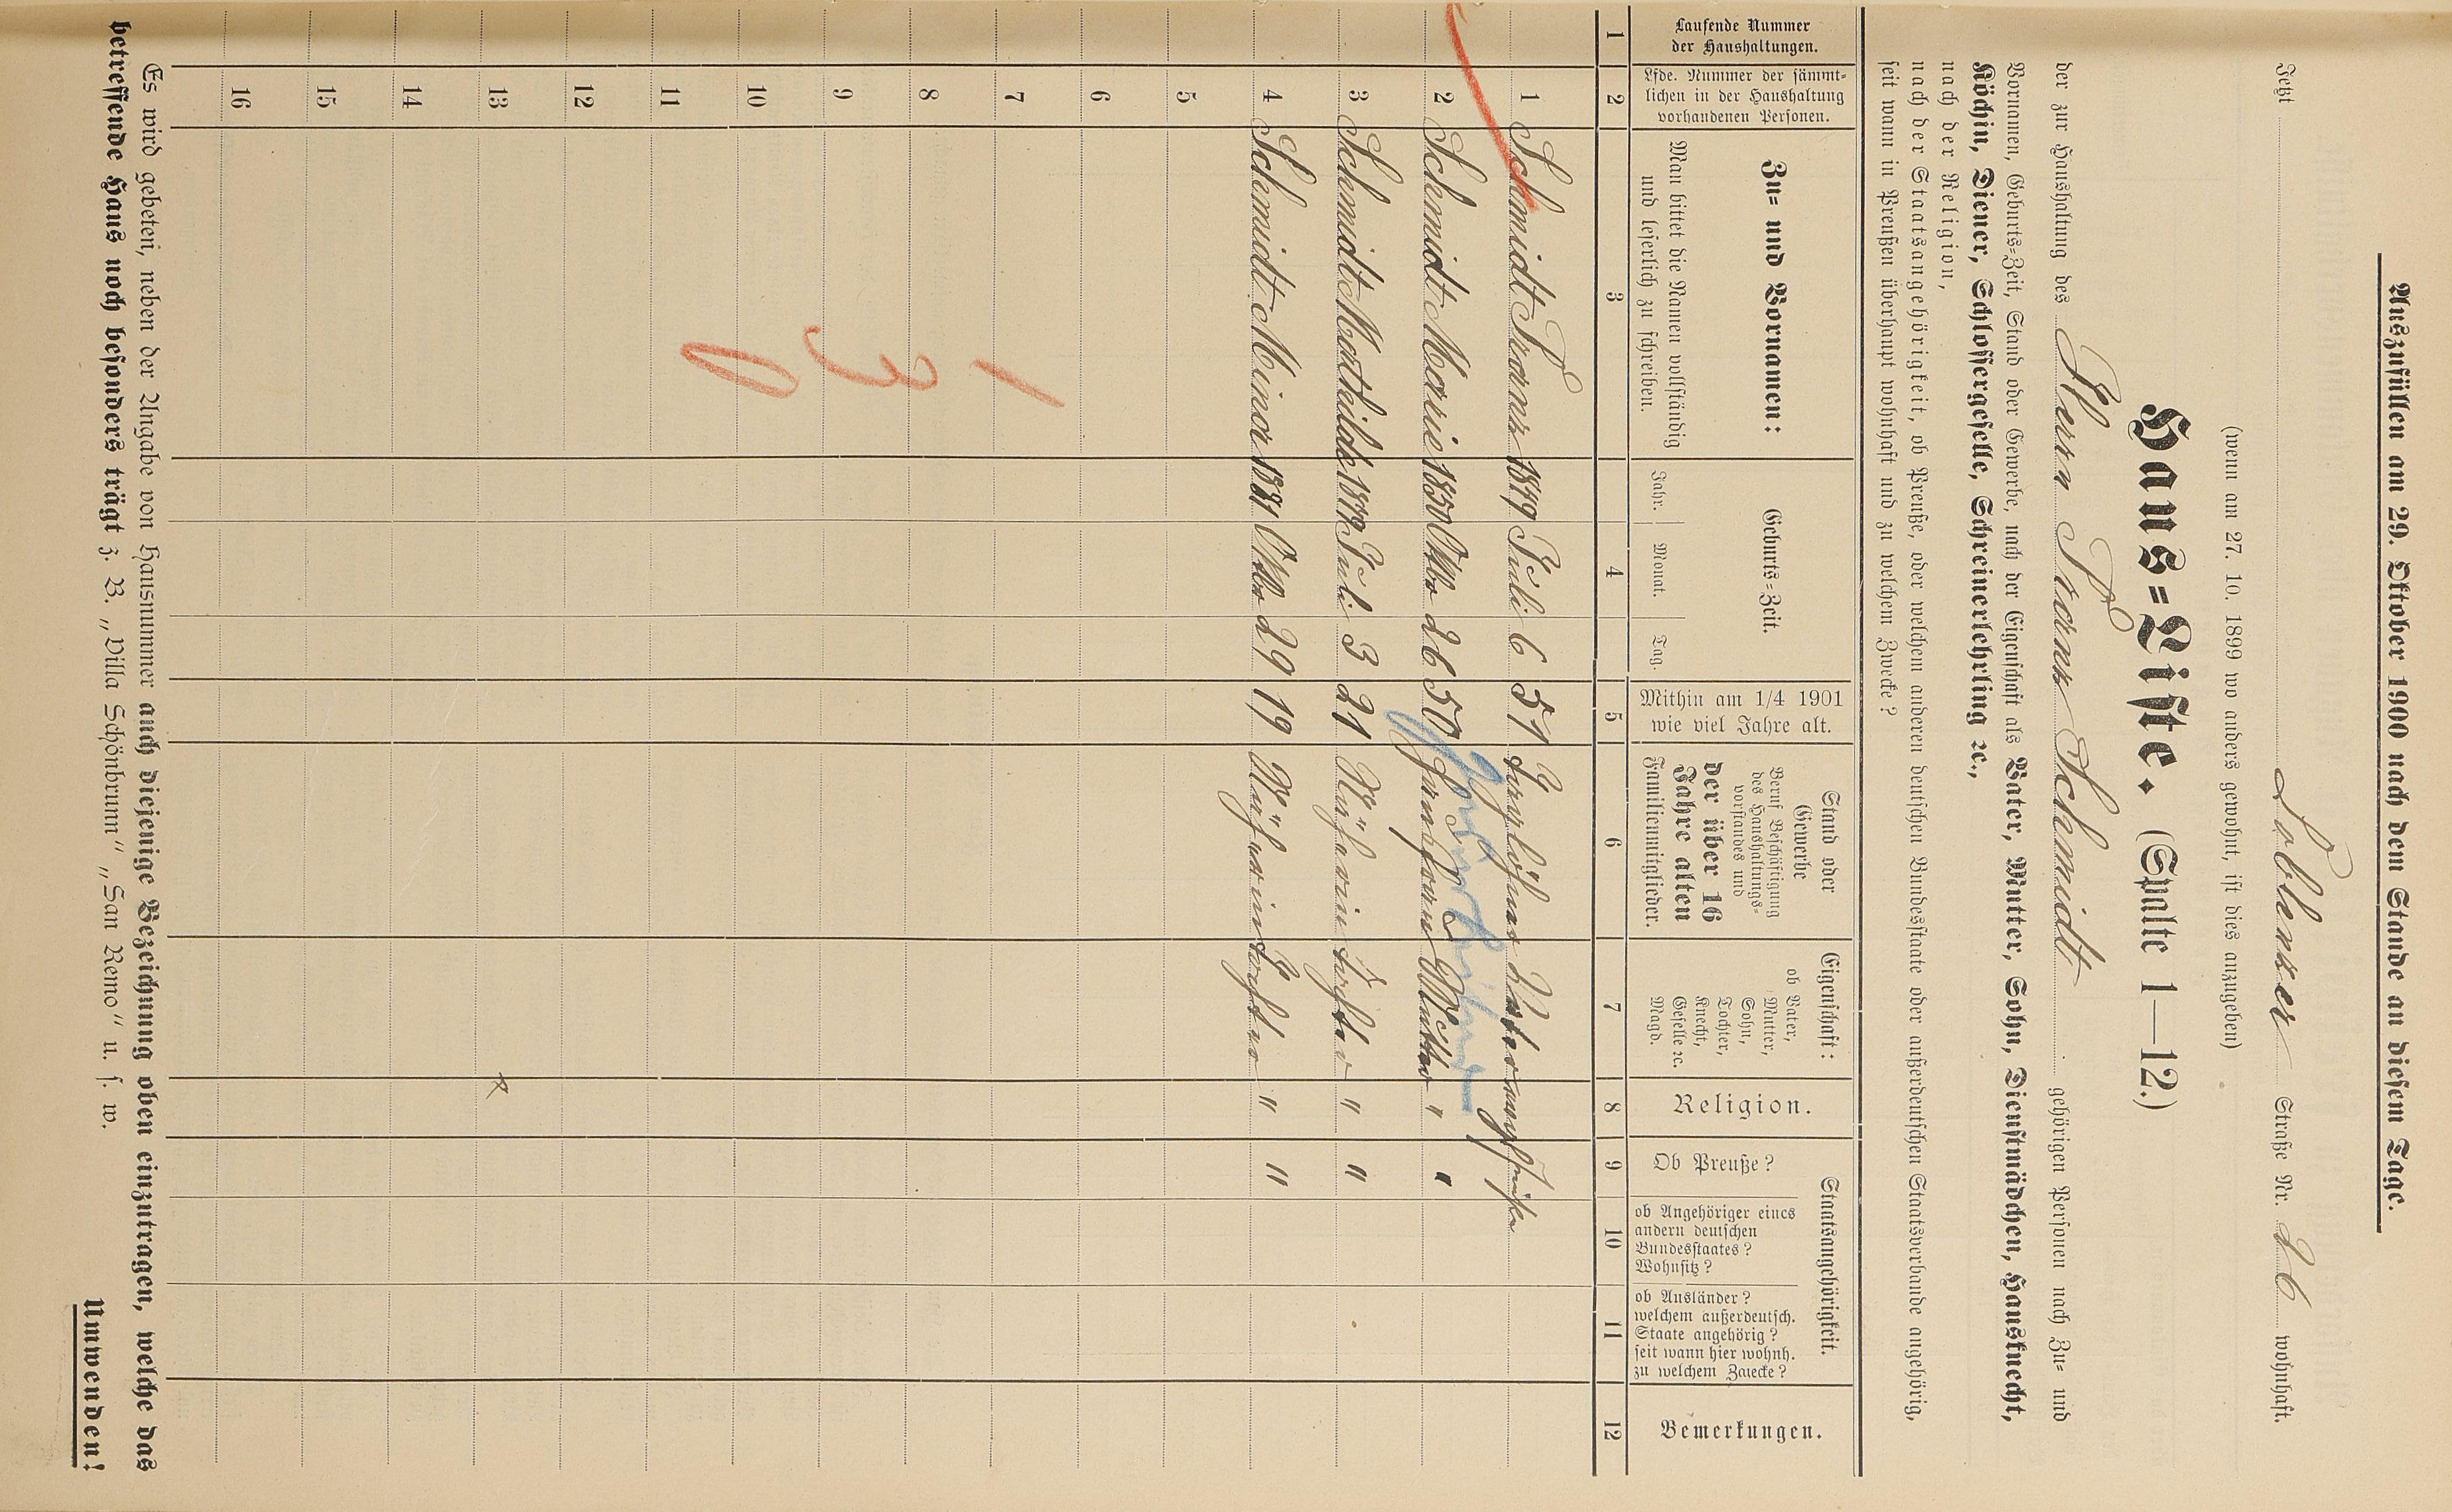 Auszufüllen am 29. Oktober 1900 nach dem Stande an diesem Tage.
Jetzt Coblenzer Straße Nr. 26 wohnhaft.
(wenn am 27. 10. 1899 wo anders gewohnt, ist dies anzugeben)
Haus=Liste. (Spalte 1—12.)
der zur Haushaltung des Herrn Franz Schmidt gehörigen Personen nach Zu= und
Vornamen, Geburts=Zeit, Stand oder Gewerbe, nach der Eigenschaft als Vater, Mutter, Sohn, Dienstmädchen, Hausknecht,
Köchin, Diener, Schlossergeselle, Schreinerlehrling ꝛc.,
nach der Religion,
nach der Staatsangehörigkeit, ob Preuße, oder welchem anderen deutschen Bundesstaate oder außerdeutschen Staatsverbande angehörig,
seit wann in Preußen überhaupt wohnhaft und zu welchem Zwecke?
Laufende Nummer
der Haushaltungen.
Lfde. Nummer der sämmt=
lichen in der Haushaltung
vorhandenen Personen.
Zu= und Vornamen:
Man bittet die Namen vollständig
und leserlich zu schreiben.
Geburts=Zeit.
Jahr. Monat. Tag.
Mithin am 1/4 1901
wie viel Jahre alt.
Stand oder
Gewerbe
Beruf Beschäftigung
des Haushaltungs=
vorstandes und
der über 16
Jahre alten
Familienmitglieder.
Eigenschaft:
ob Vater,
Mutter,
Sohn,
Tochter,
Knecht,
Geselle ꝛc.
Magd.
Religion.
Staatsangehörigkeit.
Ob Preuße?
ob Angehöriger eines
andern deutschen
Bundesstaates?
Wohnsitz?
ob Ausländer?
welchem außerdeutsch.
Staate angehörig?
seit wann hier wohnh.
zu welchem Zwecke?
Bemerkungen.
1 2 3 4 5 6 7 8 9 10 11 12
1 Schmidt Franz 1849 Juli 6 51 Tagelöhner Vater
2 Schmidt Marie 1850 Oktbr 26 50 Hausfrau Mutter " "
3 Schmidt Mathilde 1879 Juli 3 21 Näherin Tochter " "
4 Schmidt Mina 1881 Oktbr 29 19 Näherin Tochter " "
5
6
7
8
9
10
11
12
13
14
15
16
Es wird gebeten, neben der Angabe von Hausnummer auch diejenige Bezeichnung oben einzutragen, welche das
betreffende Haus noch besonders trägt z. B. „Villa Schönbrunn“ „San Remo“ u. s. w.
Umwenden!